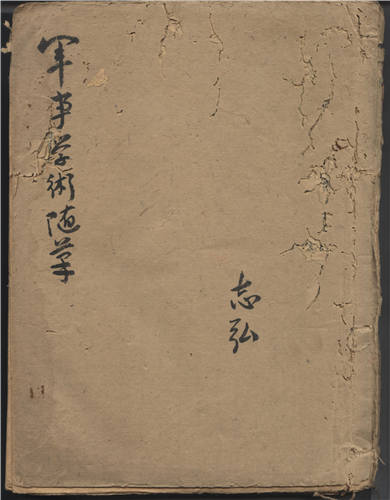 军事学術随笔
志弘